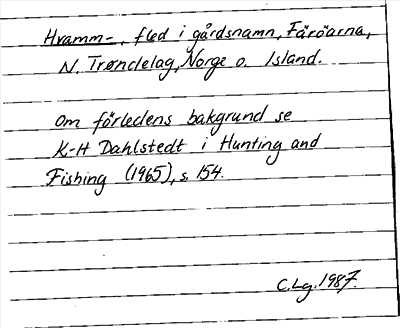 Hvamm-, fled i gårdsnamn, Färöarna,
N. Trøndelag, Norge o. Island.
Om förledens bakgrund se
K-H Dahlstedt i Hunting and
Fishing (1965), s. 154.
C.Lg. 1987.